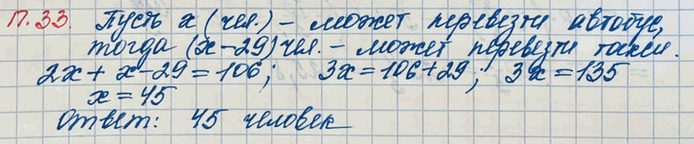 П.33. Пусть х (чел.) – может перевезти автобус,
тогда (х-29) чел. – может перевезти такси.
2х + х-29 = 106; 3х = 106+29; 3х = 135
х = 45
Ответ: 45 человек